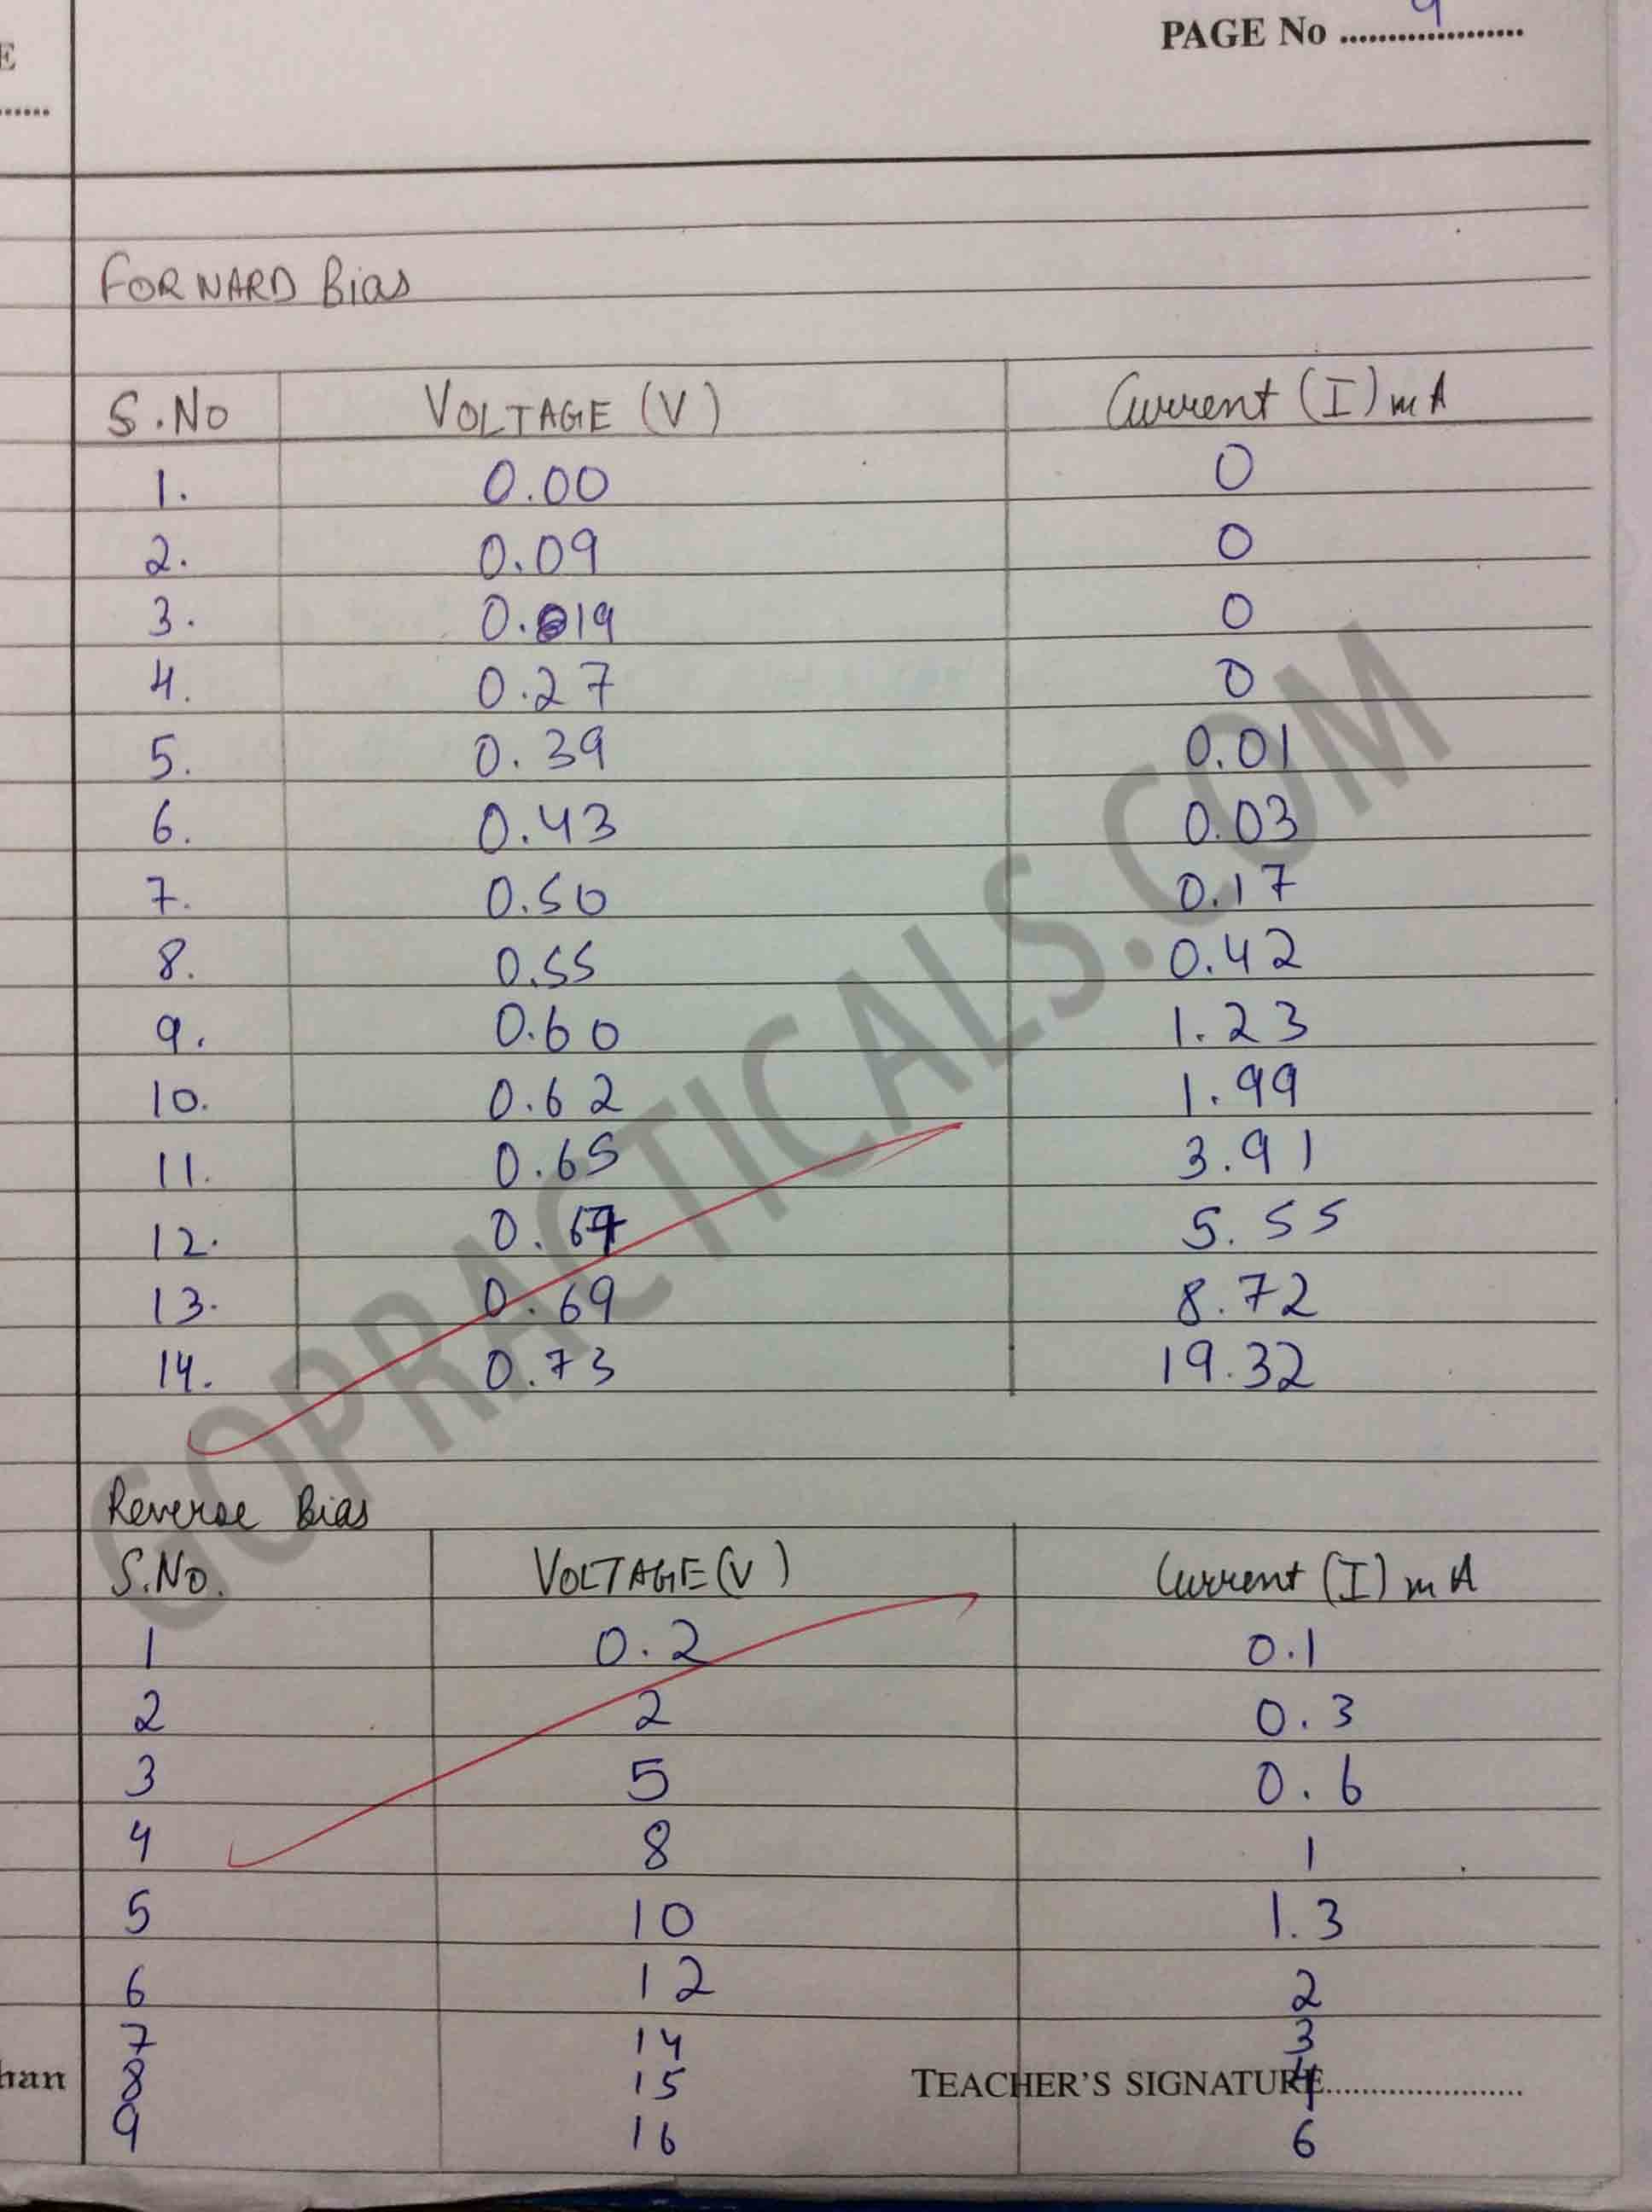 E
PAGE No ........9........
......
FORWARD Bias
S.No VOLTAGE (V) Current (I) mA
1. 0.00 0
2. 0.09 0
3. 0.19 0
4. 0.27 0
5. 0.39 0.01
6. 0.43 0.03
7. 0.50 0.17
8. 0.55 0.42
9. 0.60 1.23
10. 0.62 1.99
11. 0.65 3.91
12. 0.67 5.55
13. 0.69 8.72
14. 0.73 19.32
GOPRACTICALS.COM
Reverse Bias
S.No. VOLTAGE (V) Current (I) mA
1 0.2 0.1
2 2 0.3
3 5 0.6
4 8 1
5 10 1.3
6 12 2
7 14 3
han 8 15 TEACHER'S SIGNATURE...................... 4
9 16 6